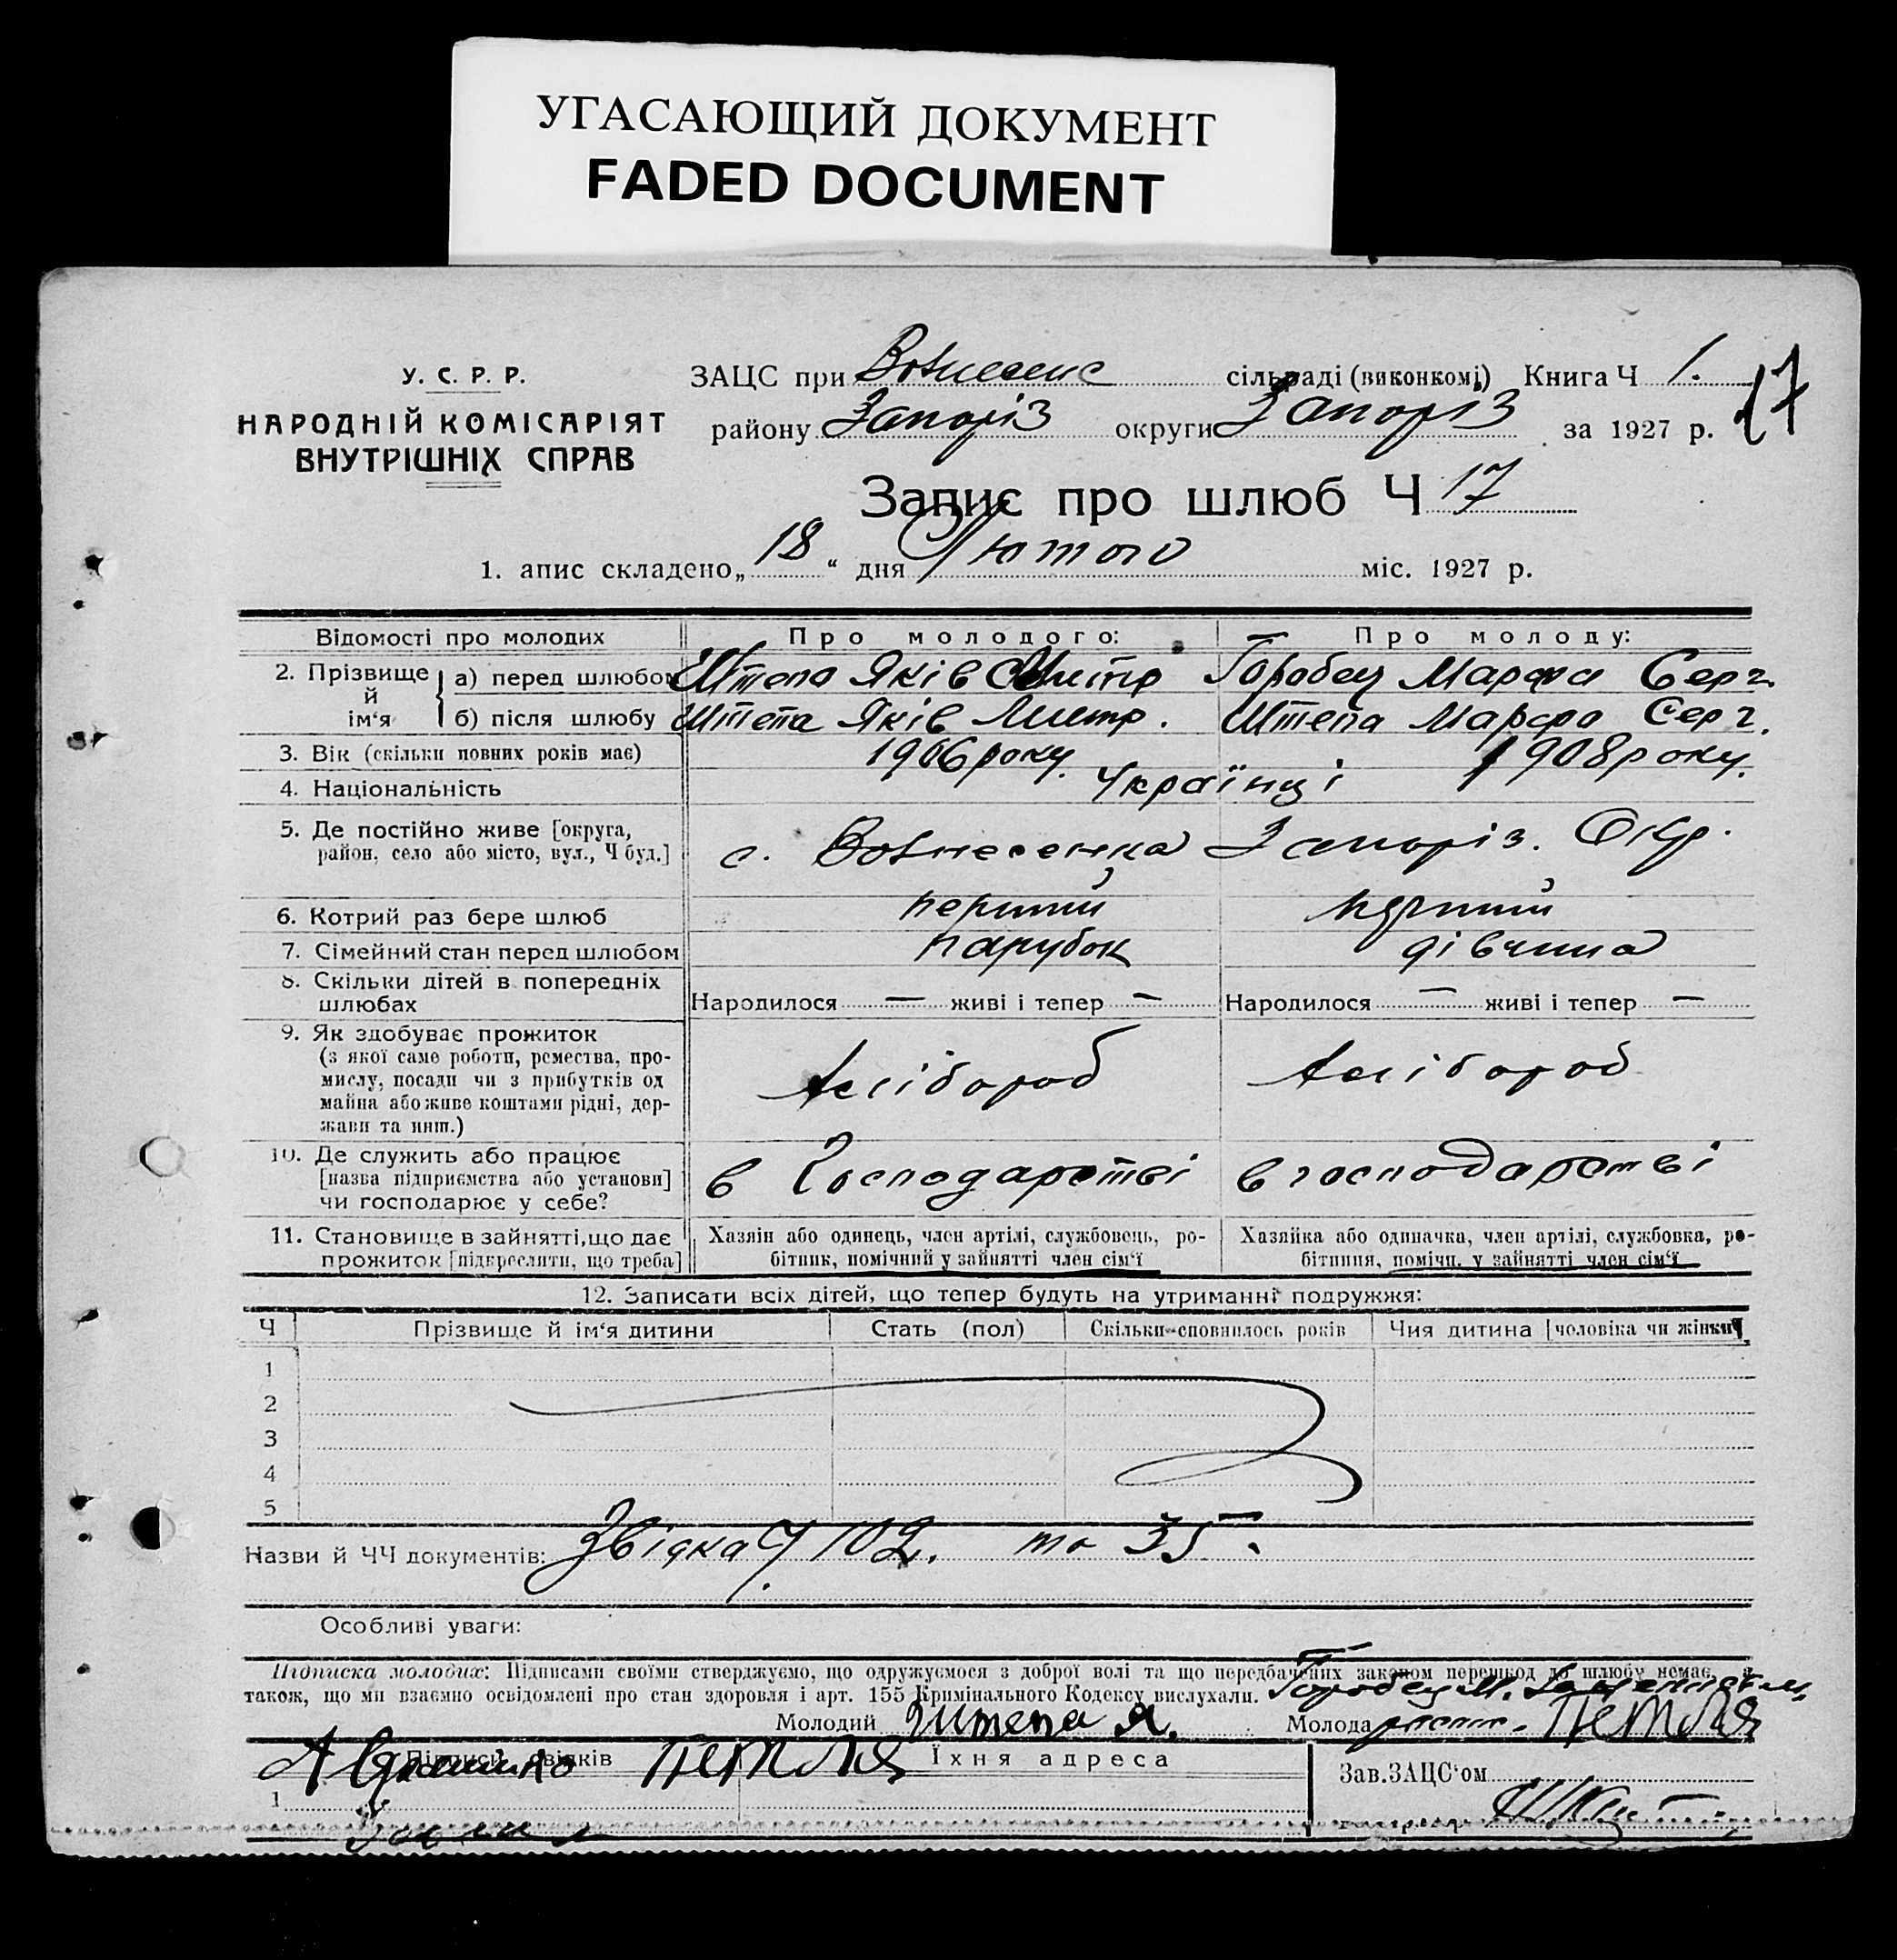 УГАСАЮЩИЙ ДОКУМЕНТ
FADED DOCUMENT
У. С. Р. Р.
НАРОДНІЙ КОМІСАРІЯТ
ВНУТРІШНІХ СПРАВ
ЗАЦС при Вознесенс сільраді (виконкомі) Книга Ч 1.
17
району Запоріз округи Запоріз за 1927 р.
Запис про шлюб Ч 17
1. апис складено „18“ дня Лютого міс. 1927 р.
Відомості про молодих Про молодого: Про молоду:
2. Прізвище й ім‘я а) перед шлюбом Штепа Яків Дмитр Горобец Марфа Серг.
б) після шлюбу Штепа Яків Дмитр. Штепа Марфа Серг.
3. Вік (скільки повних років має) 1906 року. 1908 року.
4. Національність Українці
5. Де постійно живе [округа, район, село або місто, вул., Ч буд.] с. Вознесенка Запоріз. Окр.
6. Котрий раз бере шлюб перший перший
7. Сімейний стан перед шлюбом парубок дівчина
8. Скільки дітей в попередніх шлюбах Народилося — живі і тепер — Народилося — живі і тепер —
9. Як здобуває прожиток
(з якої саме роботи, ремества, про-
мислу, посади чи з прибутків од
майна або живе коштами рідні, дер-
жави та инш.)
хлібороб хлібороб
10. Де служить або працює
[назва підприємства або установи]
чи господарює у себе?
в господарстві в господарстві
11. Становище в зайнятті, що дає
прожиток [підкреслити, що треба]
Хазяїн або одинець, член артілі, службовець, ро-
бітник, помічний у зайнятті член сім‘ї
Хазяйка або одиначка, член артілі, службовка, ро-
бітниця, помічн. у зайнятті член сім‘ї
12. Записати всіх дітей, що тепер будуть на утриманні подружжя:
Ч Прізвище й ім‘я дитини Стать (пол) Скільки сповнилось років Чия дитина [чоловіка чи жінки]
1
2
3
4
5
Назви й ЧЧ документів: Звідка Ч 102. та 35.
Особливі уваги:
Підписка молодих: Підписами своїми стверджуємо, що одружуємося з доброї волі та що передбачених законом перешкод до шлюбу немає, а
також, що ми взаємно освідомлені про стан здоровля і арт. 155 Кримінального Кодексу вислухали. Горобец М.
Молодий Штепа Я. Молода Петля
Підписи свідків Петля Їхня адреса
Зав. ЗАЦС‘ом
1